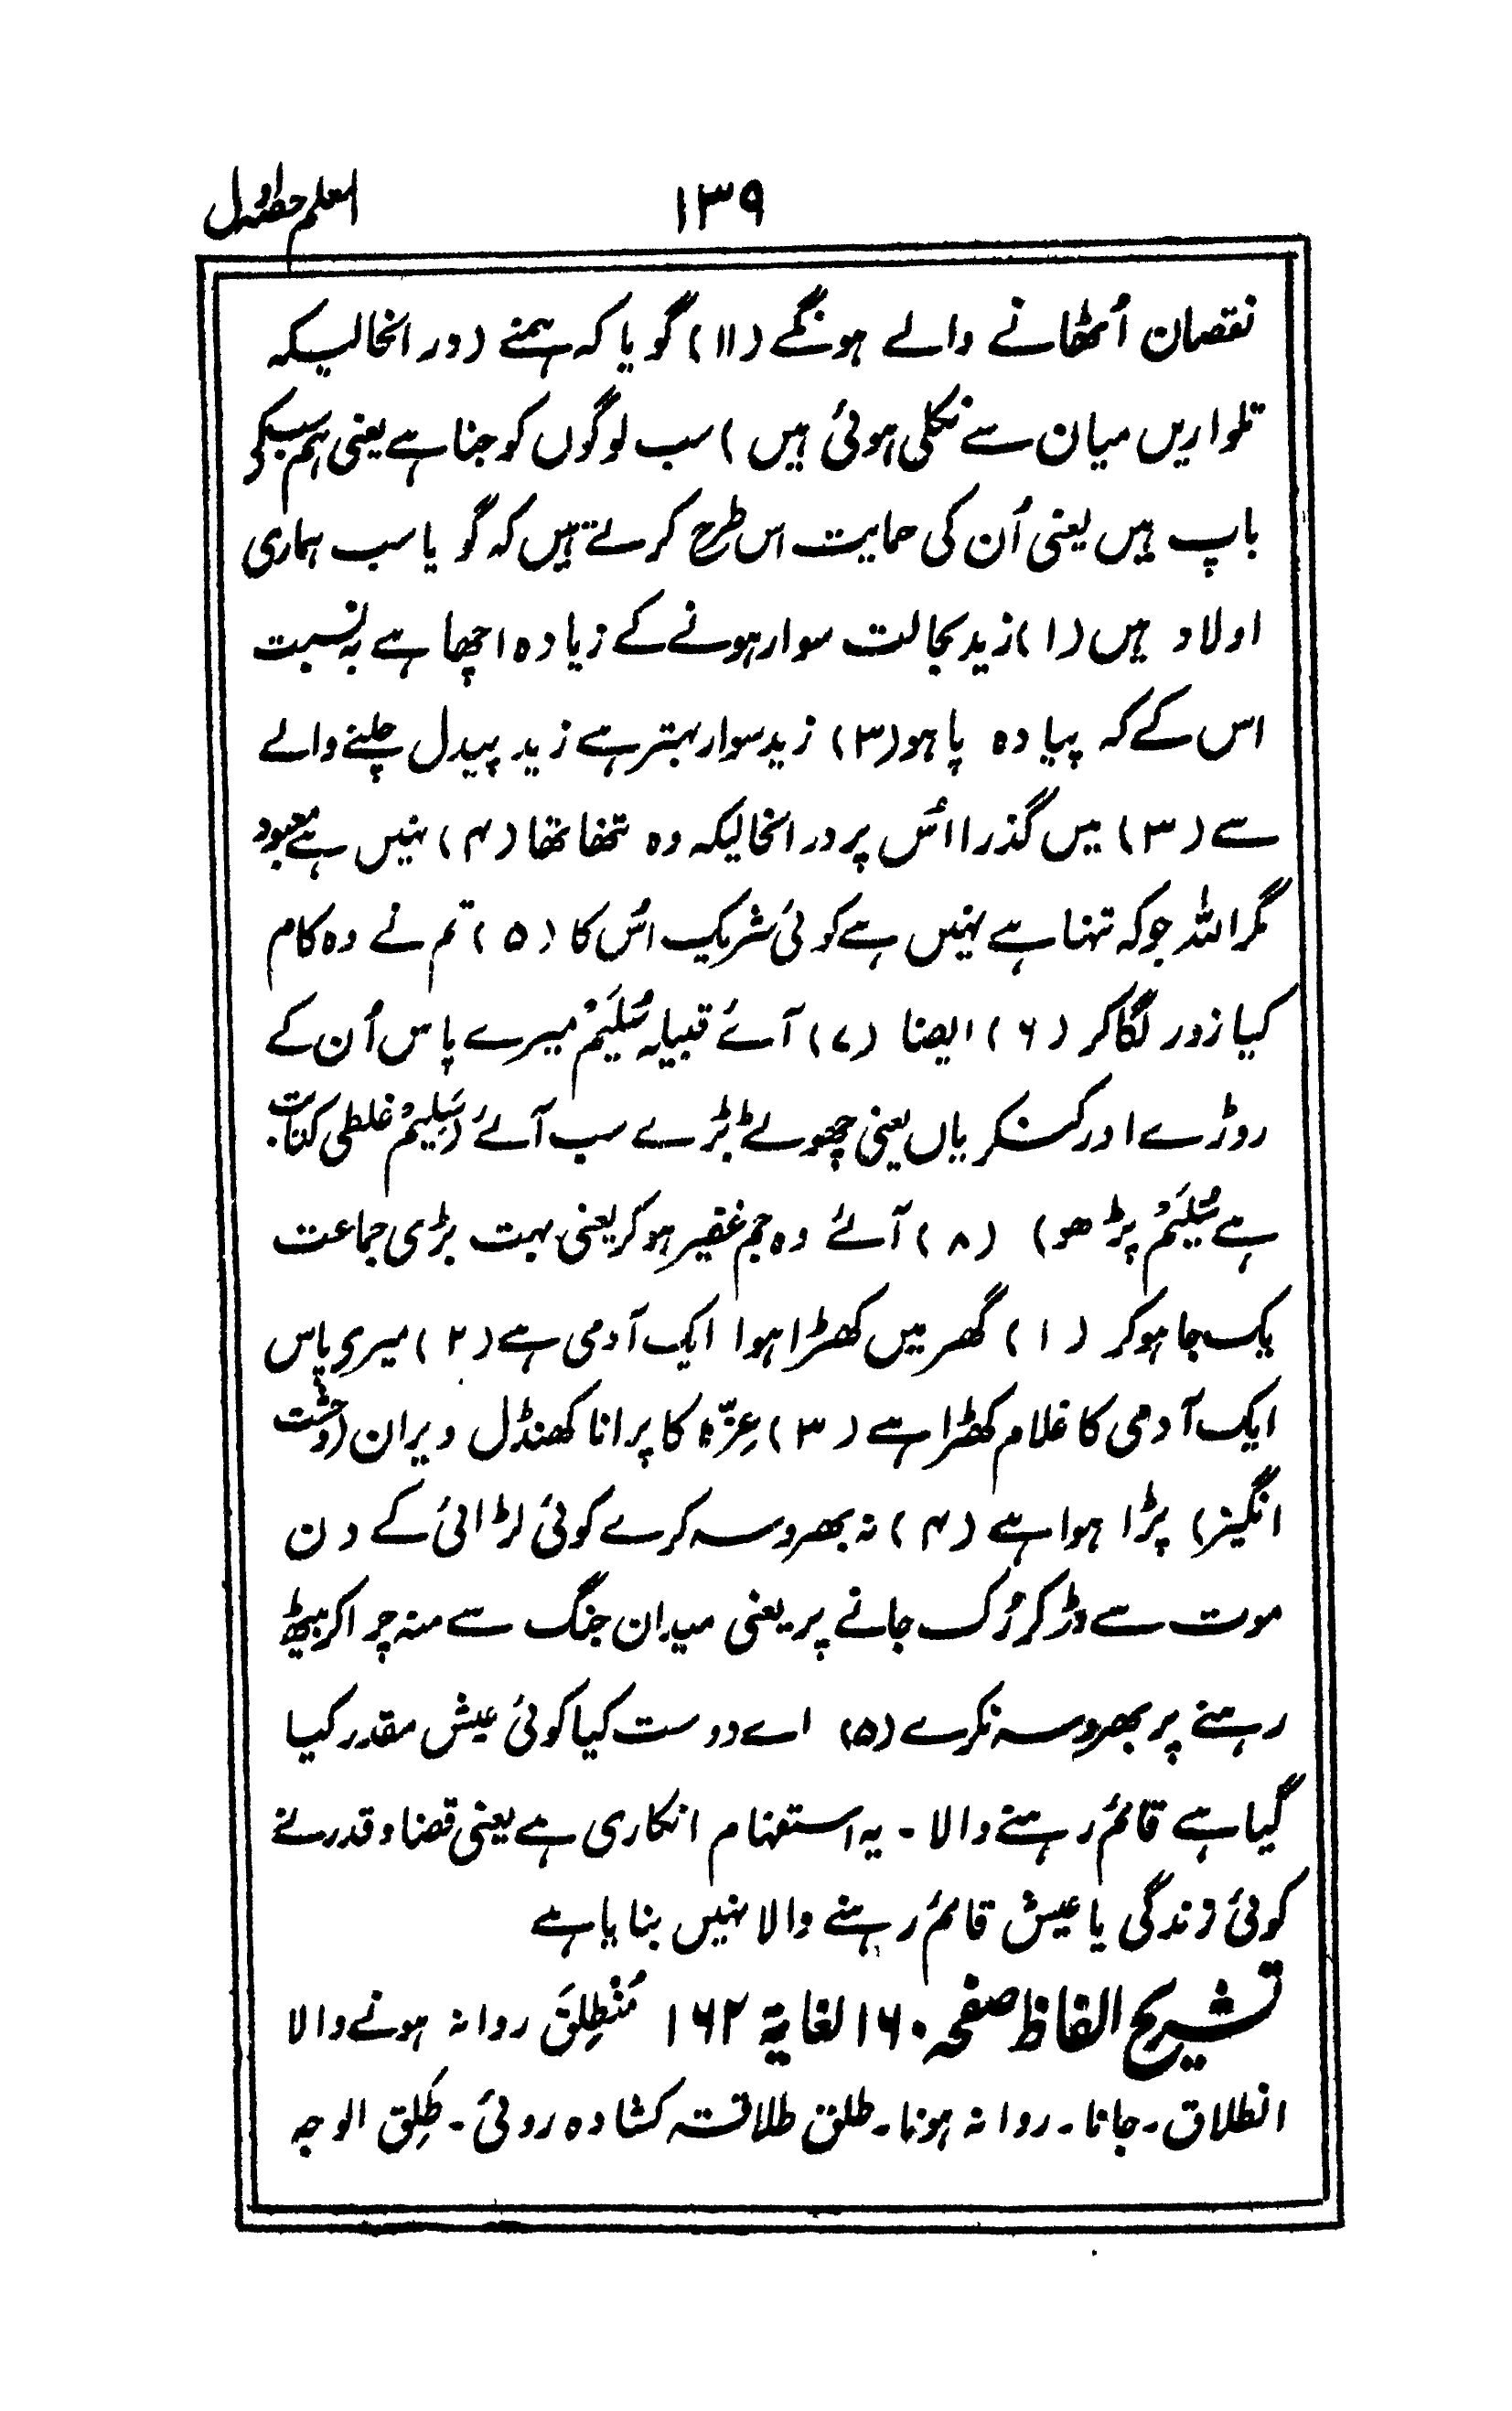 ۱۳۹ المعلم حصہ اول
نقصان اُٹھانے والے ہونگے (۱۱) گویا کہ ہمنے (در انحالیکہ
تلواریں میان سے نکلی ہوئی ہیں) سب لوگوں کو جنا ہے یعنی ہم سبکے
باپ ہیں یعنی اُن کی حمایت اس طرح کرتے ہیں کہ گویا سب ہماری
اولاد ہیں (۱) زید بحالت سوار ہونے کے زیادہ اچھا ہے بہ نسبت
اس کے کہ پیادہ پا ہو (۳) زید سوار بہتر ہے زید پیدل چلنے والے
سے (۳) میں گذرا اُس پر در انحالیکہ وہ تھا تھا (۴) نہیں ہے معبود
مگر اللہ جو کہ تنہا ہے نہیں ہے کوئی شریک اُس کا (۵) تم نے وہ کام
کیا زور لگا کر (۶) ایضا (۷) آئے قبیلہ سُلَیَمْ میرے پاس اُن کے
روڑے اور کنکریاں یعنی چھوٹے بڑے سب آئے (سَلِیمْ غلطی کتابت
ہے سُلَیَمْ پڑھو) (۸) آئے وہ جم غفیر ہو کر یعنی بہت بڑی جماعت
یک جا ہو کر (۱) گھر میں کھڑا ہوا ایک آدمی ہے (۲) میری پاس
ایک آدمی کا غلام کھڑا ہے (۳) عِزّہ کا پرانا کھنڈل ویران (وحشت
انگیز) پڑا ہوا ہے (۴) نہ بھروسہ کرے کوئی لڑائی کے دن
موت سے ڈر کر رُک جانے پر یعنی میدان جنگ سے منہ چرا کر بیٹھ
رہنے پر بھروسہ نکرے (۵) اے دوست کیا کوئی عیش مقدر کیا
گیا ہے قائم رہنے والا ۔ یہ استفہام انکاری ہے یعنی قضا و قدر نے
کوئی زندگی یا عیش قائم رہنے والا نہیں بنایا ہے
تشریح الفاظ صفحہ ۱۶۰ لغایة ۱۶۲ مُنْطِلِقَ روانہ ہونے والا
انطلاق ۔ جانا ۔ روانہ ہونا ۔ طلق طلاقتہ کشادہ روئی ۔ طَلِق الوجہ